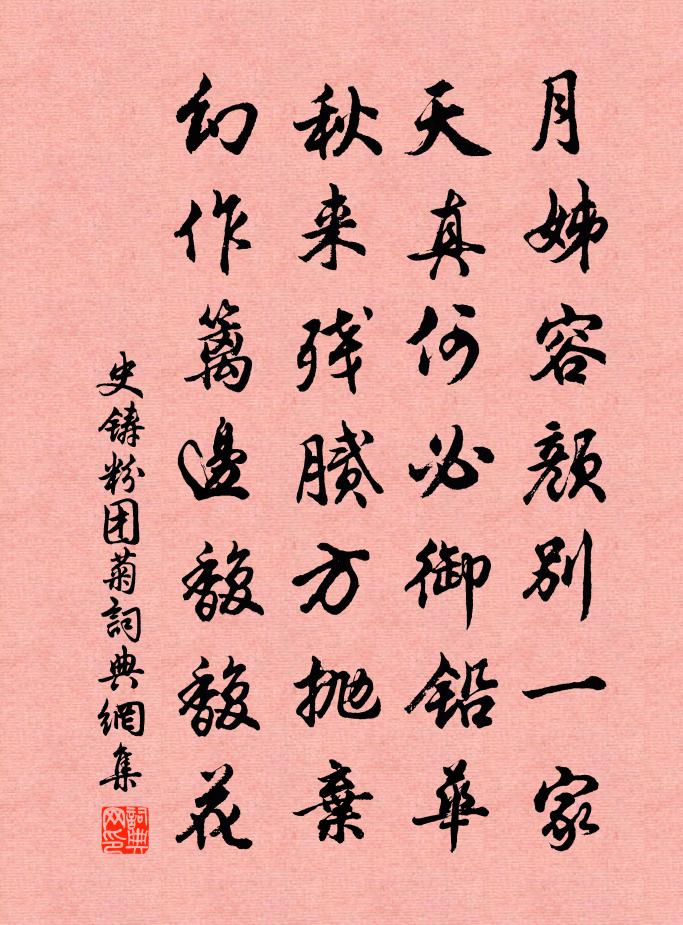 月姊容颜别一家
天真何必御铅华
秋来残腻方抛弃
幻作篱邊馥馥花
史鑄粉团菊詞典網集
詞典
网印